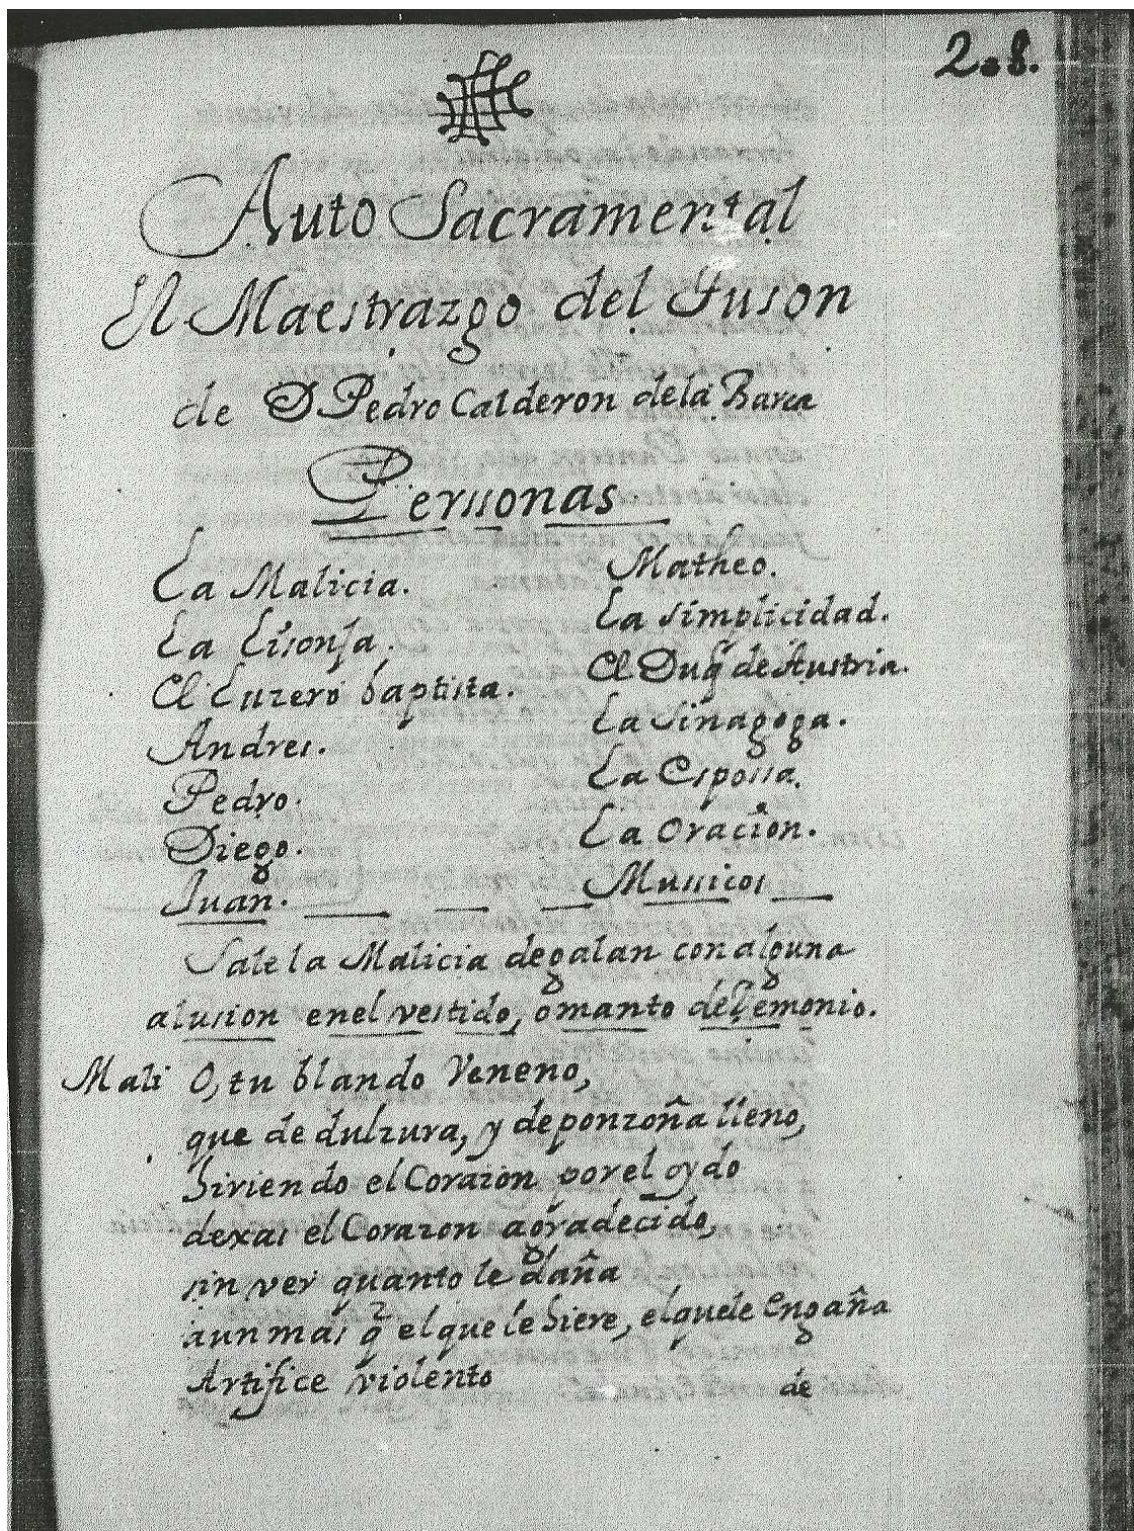 2.8.
Auto Sacramental
El Maestrazgo del Tuson
de D Pedro Calderon dela Barca
Perssonas
La Malicia.
La Lisonja.
El Luzero baptista.
Andres.
Pedro.
Diego.
Juan.
Matheo.
La simplicidad.
El Duq̃ de Austria.
La Sinagoga.
La Espossa.
La Oracion.
Mussicos
Sale la Malicia degalan con alguna
alusion enel vestido, omanto deDemonio.
Mali O, tu blando Veneno,
que de dulzura, y deponzoña lleno,
hiriendo el Corazon porel oydo
dexas el Corazon agradecido,
sin ver quanto le daña
aun mas q̃ elque le hiere, elquele engaña
Artifice violento
de